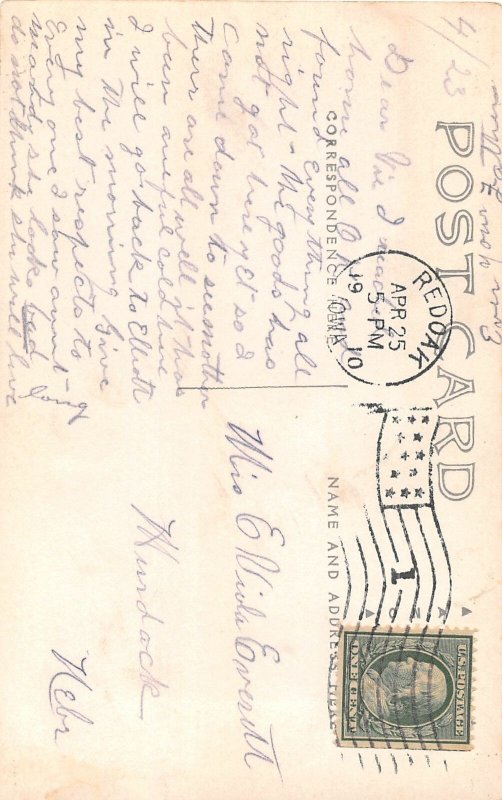 4/23
POST CARD
CORRESPONDENCE HERE
NAME AND ADDRESS HERE
REDOAK
APR 25
5-PM
1910
IOWA
1
U.S. POSTAGE
ONE CENT
Dear Vie I reached
home all O.K. and
found Everything all
right - The goods has
not got here yet so I
came down to see mother
Ther are all well it has
been awful cold here
I will go back to Elliott
in the morning Give
my best respects to
Every one I saw aunt
mandy she looks bad
do not think she will live
Miss E Viola Everett
Murdock
Nebr